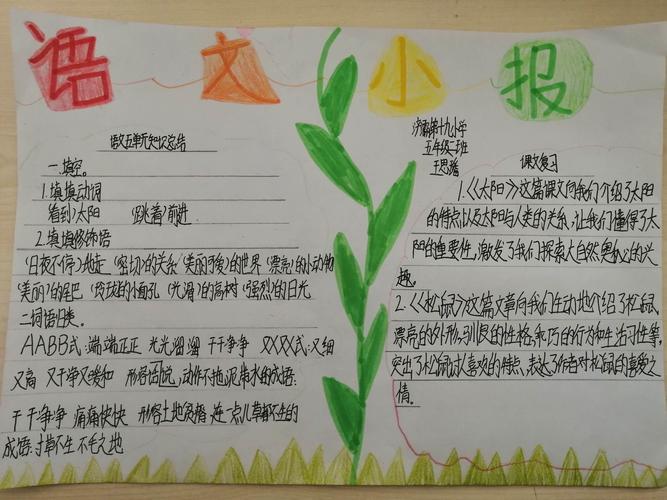 语文小报
语文五单元知识总结
一.填空。
1.填填动词
看到)太阳 (跳着)前进
2.填填修饰语
(日夜不停)地走 (密切)的关系 (美丽可爱)的世界 (漂亮)的小动物
(美丽)的尾巴 (玲珑)的小面孔 (光滑)的高树 (强烈)的日光
二词语归类。
AABB式:端端正正 光光溜溜 干干净净 又又式:又细
又高 又干净又暖和 形容说话,动作不拖泥带水的成语:
干干净净 痛痛快快 形容土地贫瘠 连一点儿草都不生的
成语:寸草不生 不毛之地
济南第十九小学
五年级二班
王思
课文复习
1.《太阳》这篇课文向我们介绍了太阳
的特点以及太阳与人类的关系,让我们懂得了太
阳的重要性,激发了我们探索大自然奥秘的兴
趣。
2.《松鼠》这篇文章向我们生动地介绍了松鼠
漂亮的外形,驯良的性格,乖巧的行为和生活习性等,
突出了松鼠讨人喜欢的特点,表达了作者对松鼠的喜爱之
情。